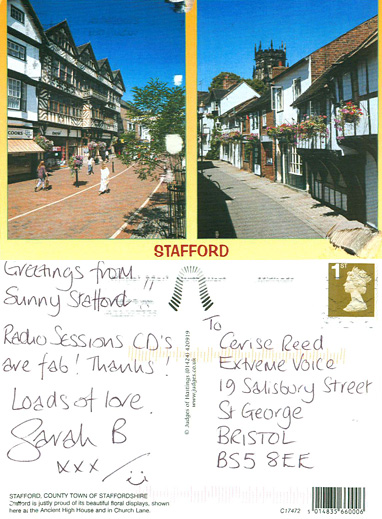 COOKS
STAFFORD
Greetings from
Sunny Stafford!!
Radio Sessions CD's
are fab! Thanks!
Loads of love
Sarah B
xxx
STAFFORD, COUNTY TOWN OF STAFFORDSHIRE
Stafford is justly proud of its beautiful floral displays, shown
here at the Ancient High House and in Church Lane.
© Judges of Hastings (01424) 420919
www.judges.co.uk
1ST
To
Cerise Reed
Extreme Voice
19 Salisbury Street
St George
BRISTOL
BS5 8EE
C17472
1 014835 660006